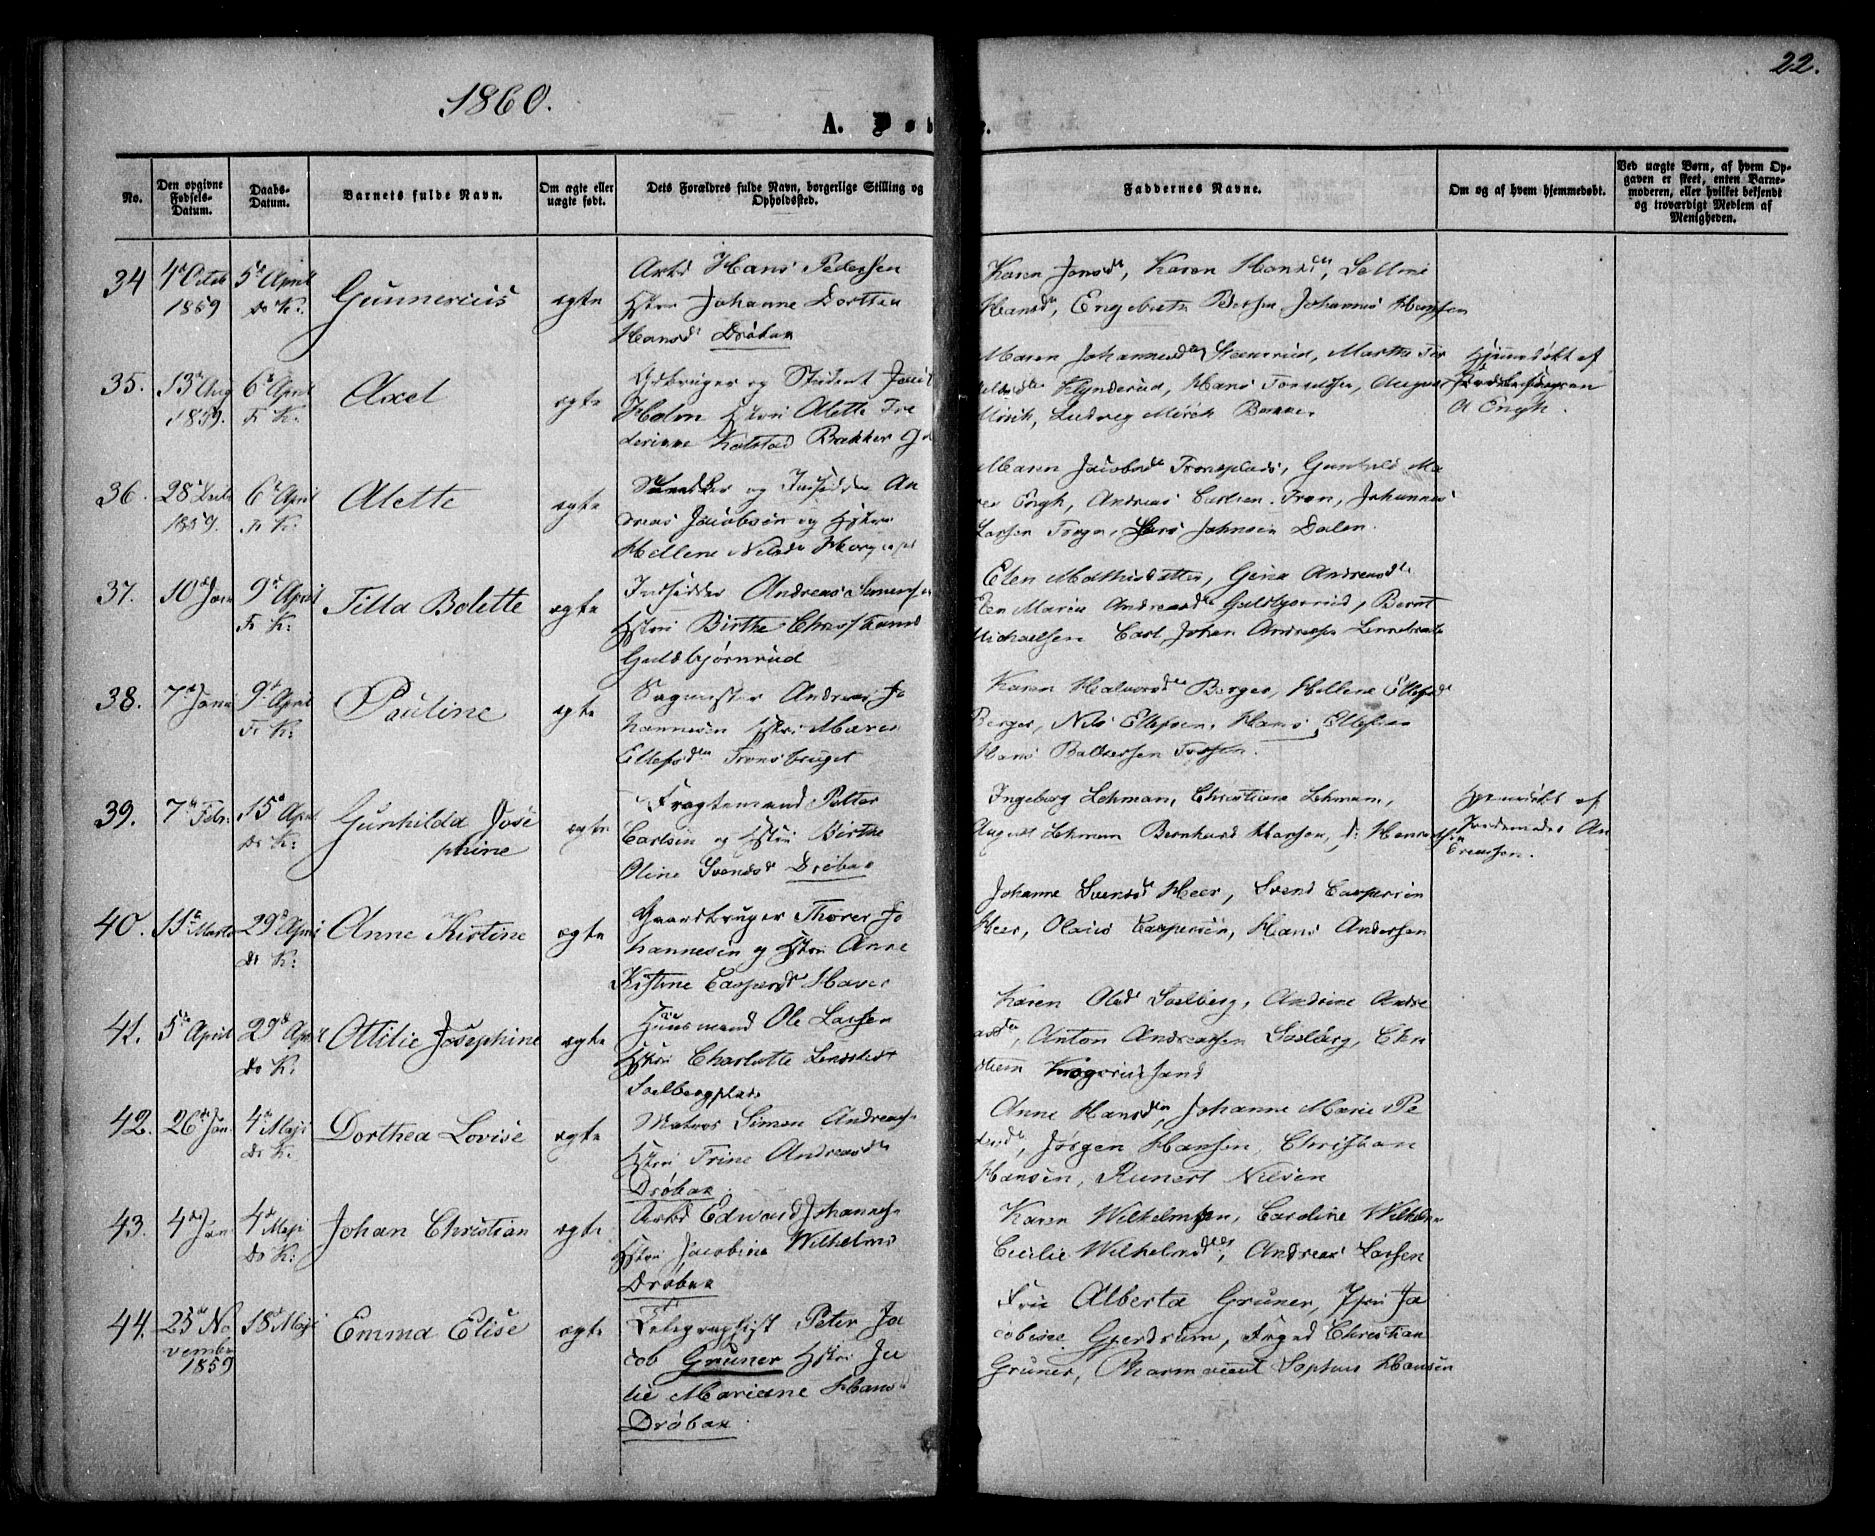 1860.
22.
A. Døbte.
No.
Den opgivne Fødsels-Datum.
Daabs-Datum.
Barnets fulde Navn.
Om ægte eller uægte født.
Dets Forældres fulde Navn, borgerlige Stilling og Opholdssted.
Faddernes Navne.
Om og af hvem hjemmedøbt.
Ved uægte Børn, af hvem Opgaven er skeet, enten Barnemoderen, eller hvilket bekjendt og troværdigt Medlem af Menigheden.
34 4de Octob 1859 5te April Dr K: Gunnerius ægte
Arbd Hans Pedersen
Hstri Johanne Dorthea
Hansdr Drøbak
Karen Jonsdr, Karen Hansdr,
Hansdr, Johannes Hansen
35. 13de Aug 1859. 6te April Fr K: Axel ægte
Gdbruger og Student
Holm Hstri Alette
Maren Johannesdr Martha
Hans August
Mörch, Ludvig Mörch
Hjemmedøbt af
A Engh.
36. 28de 1859. 6te April Fr K: Alette ægte
og Inds An
dreas Jacobsen og Hstru
Hellene Nilsdr
Maren Jacobsdr Tronsplads, Gunhild Ma
Engh, Andreas Carlsen Tron, Johannes
Larsen Lars Johnsen Dalen.
37. 10de Jan 9de April Fr K: Tilla Bolette ægte
Indsidder Andreas
Hstri Birthe Christians
Guldbjørnrud
Elen Mathisdatter, Gina Andreasdr
Marie Andreasdr Guldbjørnrud, Bernt
Michaelsen Carl Johan Andreasen
38. 7de Janu 9de April Fr K: Pauline ægte
Sagmester Andreas Jo
hannesen Hstri Maren
Ellefsdr Tronsbruget
Karen Halvorsdr Berger, Hellene Ellefsdr
Berger, Nils Ellefsen, Hans Ellefsen
Hans Baltzersen
39. 7de Febr: 15de April Dr K: Gunhilda Jose
phine ægte
Fragtemand Petter
Carlsen og Hstri Birthe
Oline Svendsdr Drøbak
Ingeborg Lehman, Christiane Lehman,
August Lehman Bernhard Hansen,
Hjemmedøbt af
40. 11te Marts 29de April Dr K: Anne Kistine ægte
Gaardbruger Thorer Jo
hannesen og Hstri Anne
Kistine Caspersdr Haver
Johanne Svendsdr Heer, Svend Caspersen
Heer, Olaus Caspersen, Hans Andersen
41. 5te April 29de April Dr K: Ottilie Josephine ægte
Huusmand Ole Larsen
Hstri Charlotte
Solbergplads
Karen Olsdr Solberg, Andrine Andre
asdr, Anton Andreassen Solberg, Chri
42. 26de Jan 4de Maji Dr K. Dorthea Lovise ægte
Matros Simon Andreas
Hstri Trine Andreasdr
Drøbak
Anne Hansdr, Johanne Marie Pe
dersdr, Jørgen Hansen, Christian
Hansen, Nilsen
43. 4de Jan 4de Maji Dr K: Johan Christian ægte
Arbd Edvard Johannes
Hstri Jacobine Wilhelms
Drøbak
Karen Wilhelmsen, Caroline Wilhelm
Cecilie Wilhelmsdr, Andreas Larsen
44. 23de No
vembr 1859 18de Maji Emma Elise ægte
Telegraphist Peter Ja
cob Gruner Hstri Ju
lie Mariane Hans
Drøbak.
Fru Alberta Gruner, Jfru Ja
cobine Gjerdrum, Christian
Gruner, Pharmaceut Sophus Hansen